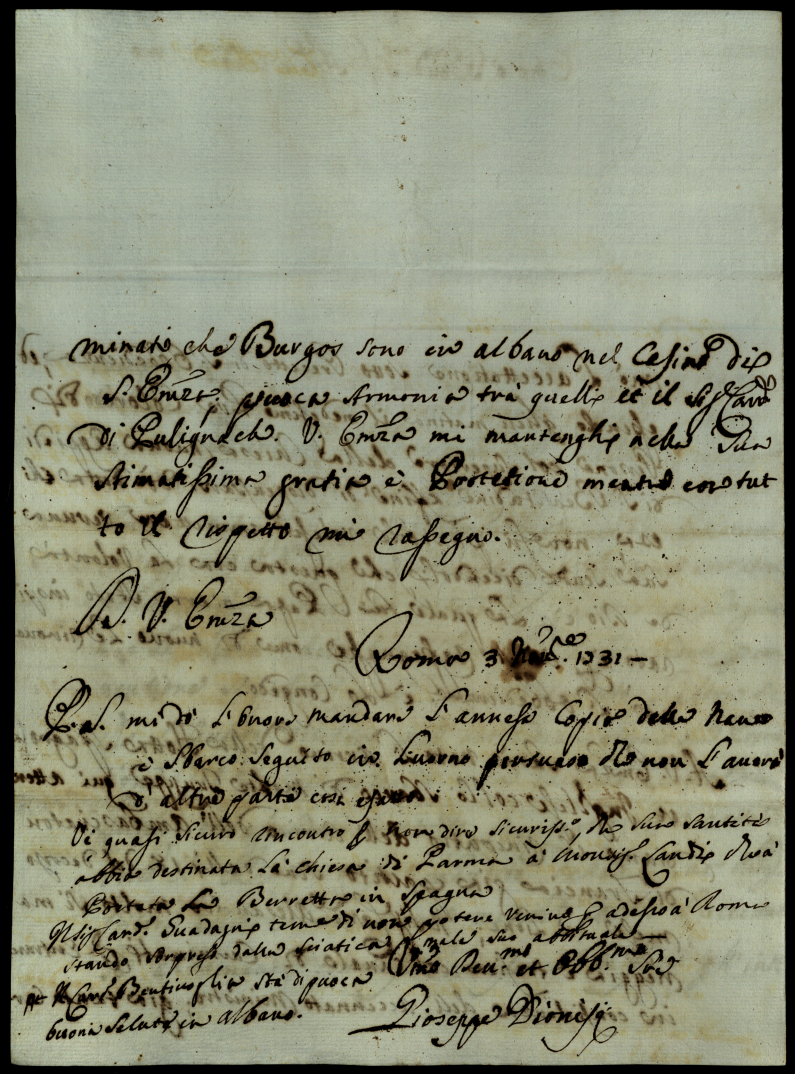 minato che Burgos sono in albano nel Casino di
S. Emza. puoca Armonia trà quelli et il Sig. Card.
Di Pulignach. V. Emza mi mantenghi nella Sua
stimatissima gratia è Protetione mentre con tut
to il rispetto mi rassegno.
D. V. Emza
Roma 3 Nov.re 1731 –
P.S. mi dò l'onore mandare l'annessa Copia delle Nave
è Sbarco Seguito in Livorno persuaso che non l'averà
d'altre parte così
Vi quasi sicuro incontro p non dire sicuriss.o che Sua Santità
abbia destinata La chiesa di Parma à Monsig. Landi che à
Portata La Berretta in Spagna
Il Sig. Card. Guadagni teme di non potere venire p adesso à Roma
stando sorpreso dalla Sciatica male suo abituale
Il Card. Bentivoglio stà di puoca
buona Salute in albano.
Umo Deu.mo et Obb.mo Sre
Gioseppe Dionisij